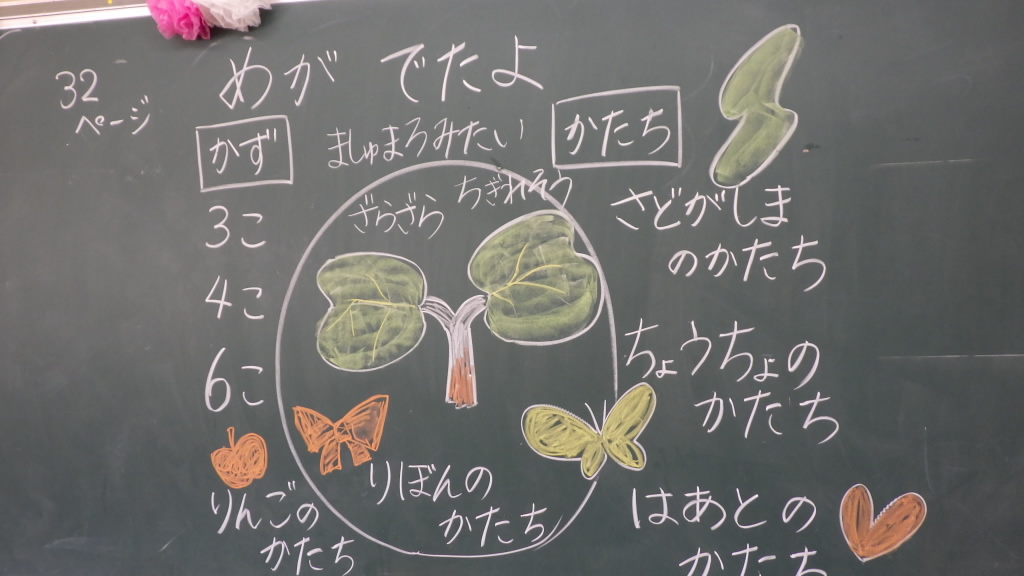 32
ページ
めが でたよ
かず
ましゅまろみたい
かたち
ざらざら
ちぎれそう
3こ
4こ
6こ
さどがしま
のかたち
ちょうちょの
かたち
りんごの
かたち
りぼんの
かたち
はあとの
かたち